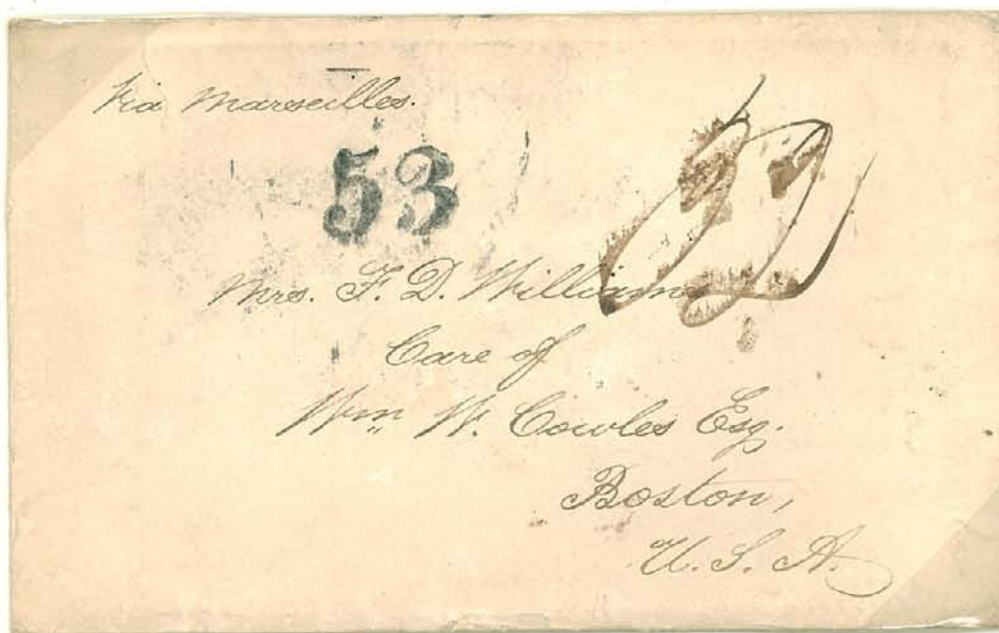 Via Marseilles.
53
Mrs. F. D. Williams
Care of
Wm W. Cowles Esq.
Boston,
U. S. A.